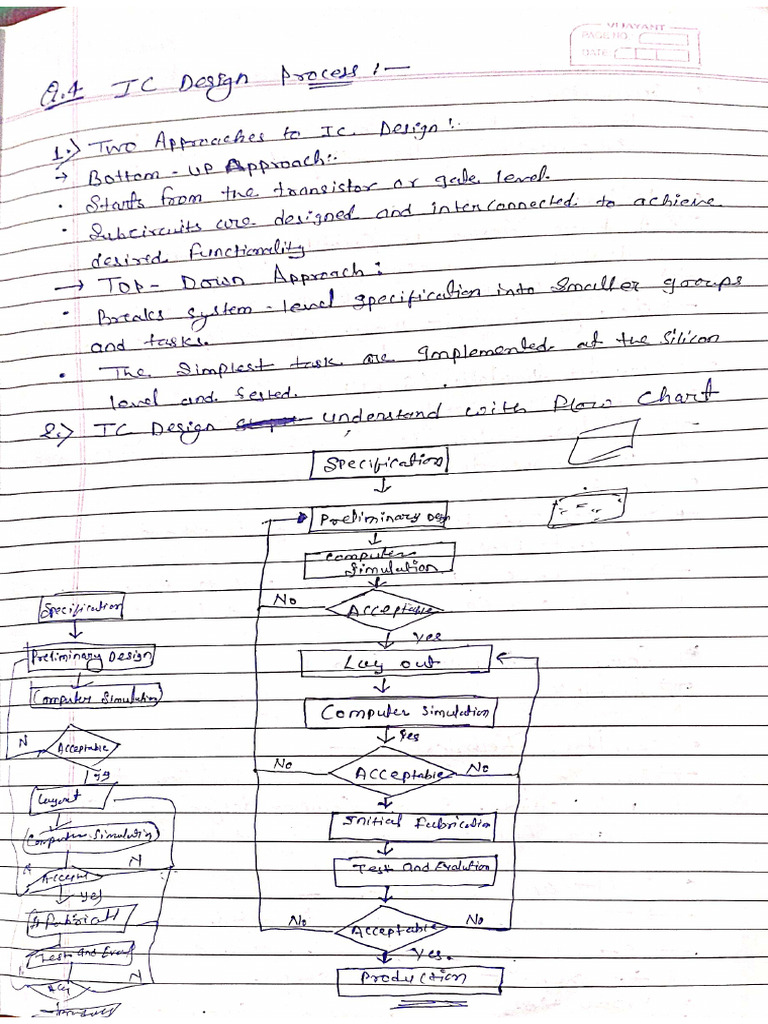 VIJAYANT
PAGE NO.
DATE
Q.4 IC Design Process :-
1.) Two Approaches to IC. Design:.
→ Bottom - UP Approach:.
· Starts from the transistor or gate level.
· Subcircuits are designed and interconnected to achieve
desired functionality
→ Top - Down Approach:
· Breaks system - level specification into smaller groups
and tasks.
· The simplest task are implemented at the silicon
level and
2.) IC Design understand with Flow Chart
Specification
Preliminary
Computer
Simulation
No
Acceptable
Yes
Lay out
Computer Simulation
Yes
No
Acceptable
No
Initial Fabrication
Test and Evalution
No
Acceptable
No
Yes.
Production
Specification
Preliminary Design
Computer Simulation
N
Acceptable
Layout
Computer Simulation
N
Accept
yes
Test and
N